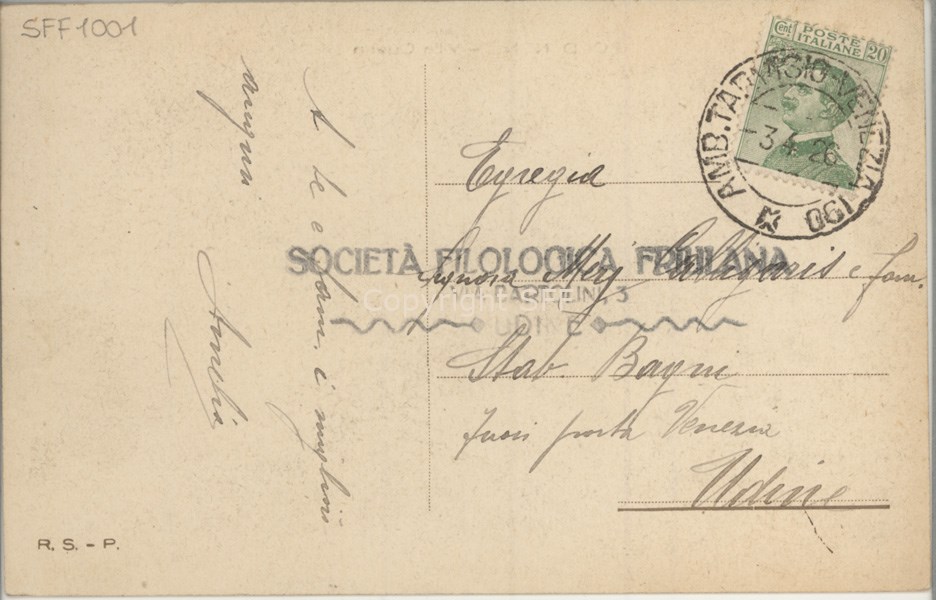 SFF1001
Cent POSTE ITALIANE 20
AMB. TARVISIO-VENEZIA 190
3.4.26
A te e fam. i migliori
auguri
Amelia
Egregia
Signora Mery Calligaris e fam.
Stab. Bagni
fuori porta Venezia
Udine
SOCIETÀ FILOLOGICA FRIULANA
VIA BARTOLINI, 3
UDINE
Copyright SFF
R. S. - P.